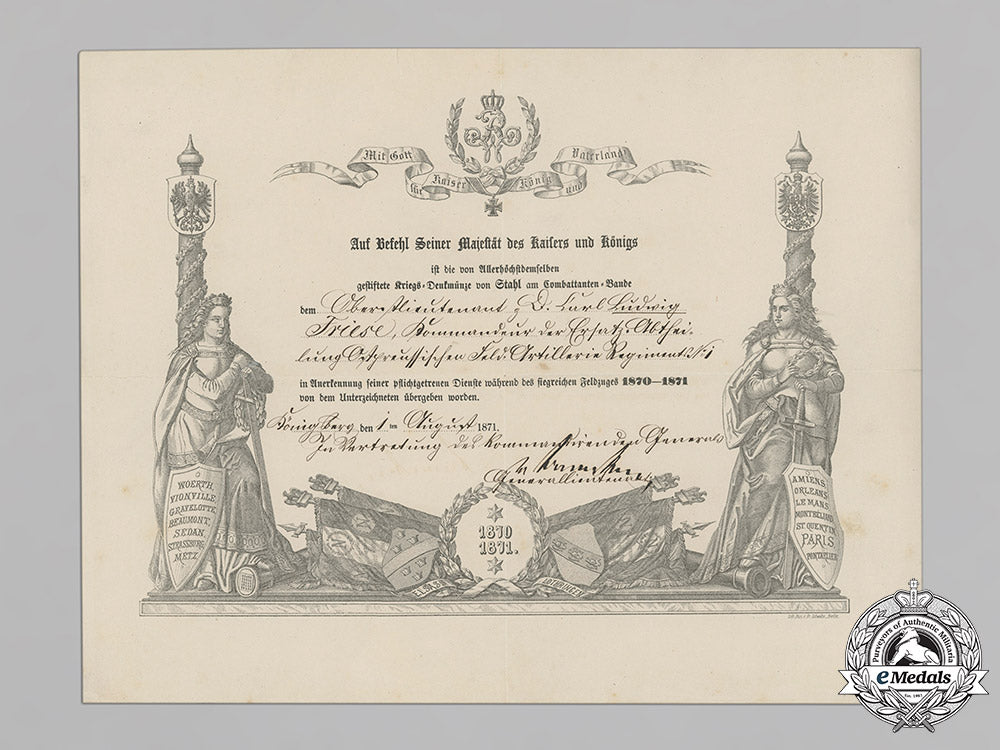 Mit Gott
für
Kaiser
König
und
Vaterland
Auf Befehl Seiner Majestät des Kaisers und Königs
ist die von Allerhöchstdemselben
gestiftete Kriegs-Denkmünze von Stahl am Combattanten-Bande
dem Oberstlieutenant z. D. Carl Ludwig
Friese, Kommandeur der Ersatz-Abthei-
lung Ostpreussischen Feld-Artillerie Regiments № 1
in Anerkennung seiner pflichtgetreuen Dienste während des siegreichen Feldzuges 1870—1871
von dem Unterzeichneten übergeben worden.
Königsberg, den 1 ten August 1871.
In Vertretung des kommandirenden Generals
Generallieutenant
WOERTH,
VIONVILLE
GRAVELOTTE
BEAUMONT,
SEDAN,
STRASSBURG,
METZ.
1870
1871.
ELSASS
LOTHRINGEN
AMIENS
ORLEANS
LE MANS
MONTBELIARD
ST. QUENTIN
PARIS
PONTARLIER
Purveyors of Authentic Militaria
eMedals
Est. 1967